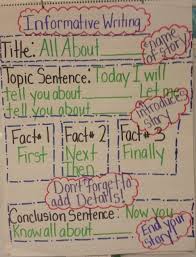 Informative Writing
Title: All About
name of story
Topic Sentence: Today I will
tell you about Let me
tell you about
Introduces story
Fact #1 Fact #2 Fact #3
First Next Finally
Then
Don't Forget to
add Details!
Conclusion Sentence: Now you
Know all about
End your story